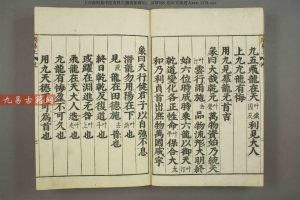 九五飛龍在天利見大人
上九亢龍有悔
用九見羣龍无首吉
彖曰大哉乾元萬物資始乃統天
雲行雨施品物流形大明終
始六位時成時乘六龍以御天
乾道變化各正性命保合大
和乃利貞首出庶物萬國咸寧
象曰天行健君子以自強不息
潛龍勿用陽在下也
見龍在田德施普也
終日乾乾反復道也
或躍在淵進无咎也
飛龍在天大人造也
亢龍有悔盈不可久也
用九天德不可爲首也
九易古籍网